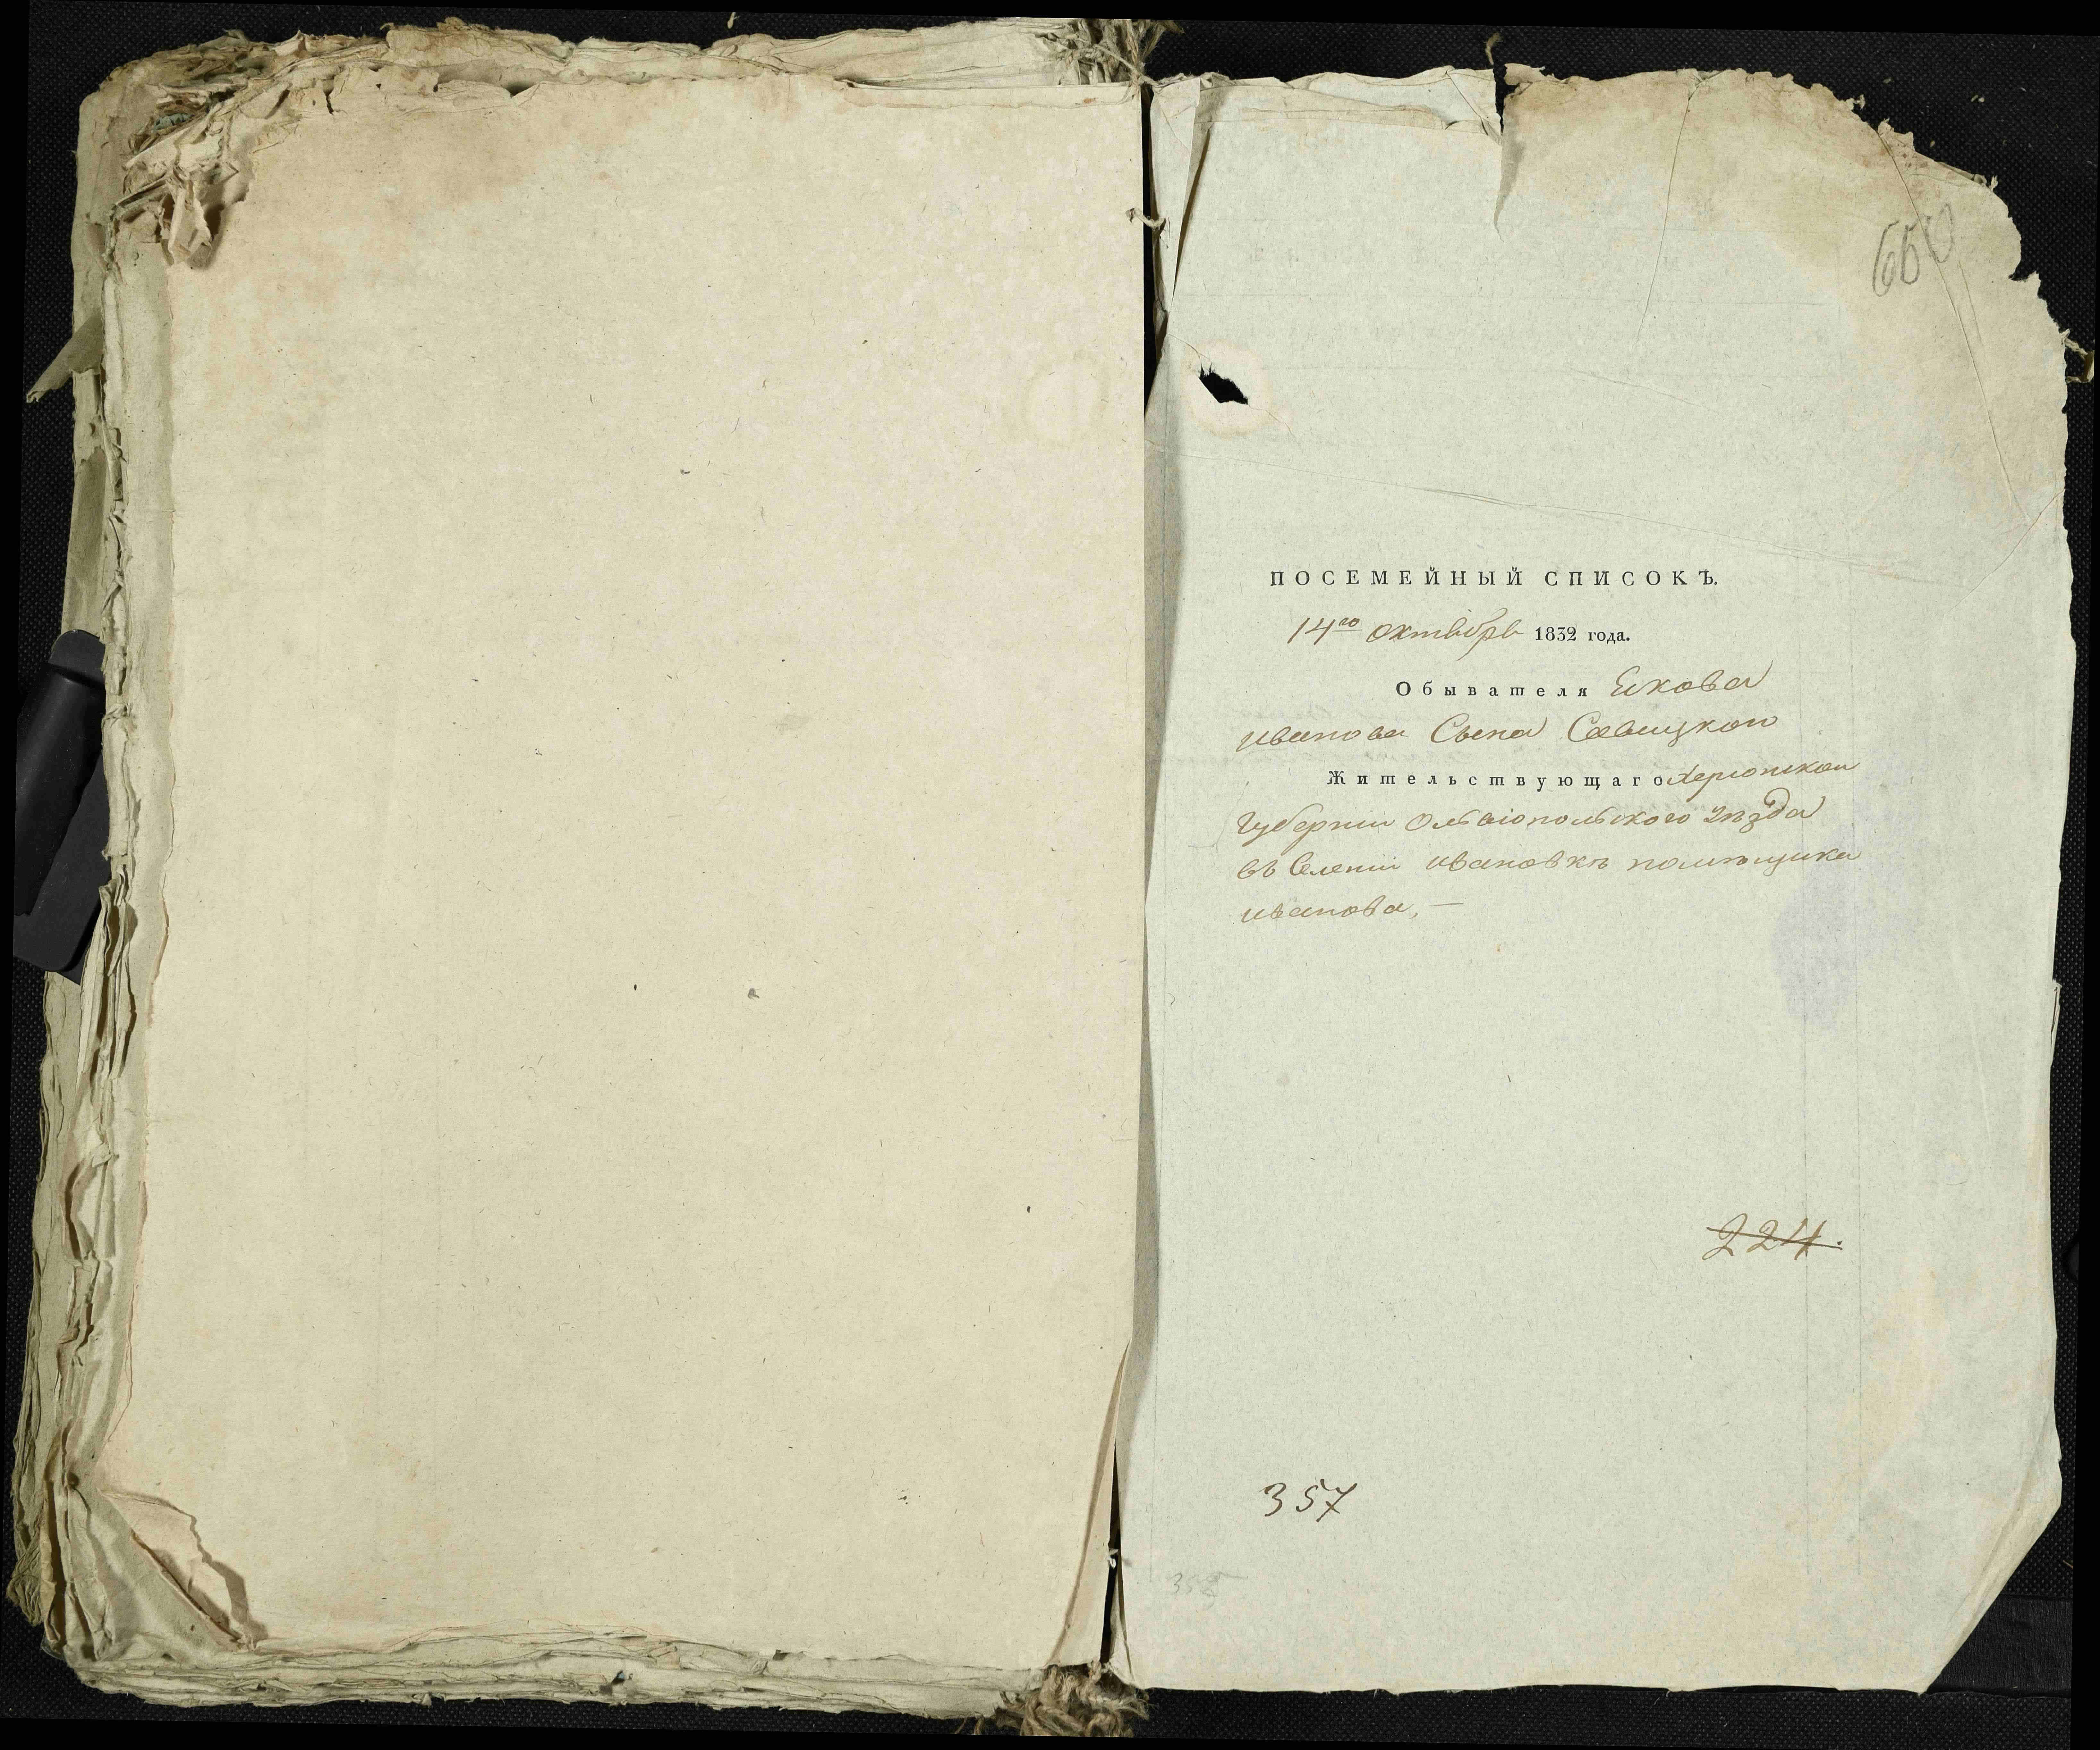 660
ПОСЕМЕЙНЫЙ СПИСОКЪ.
14го октября 1832 года.
Обывателя Якова
Иванова Сына Савицкого
Жительствующаго Херсонской
Губерніи Ольвіопольского уѣзда
въ Селеніи Ивановкѣ помѣщика
Иванова, —
224.
357